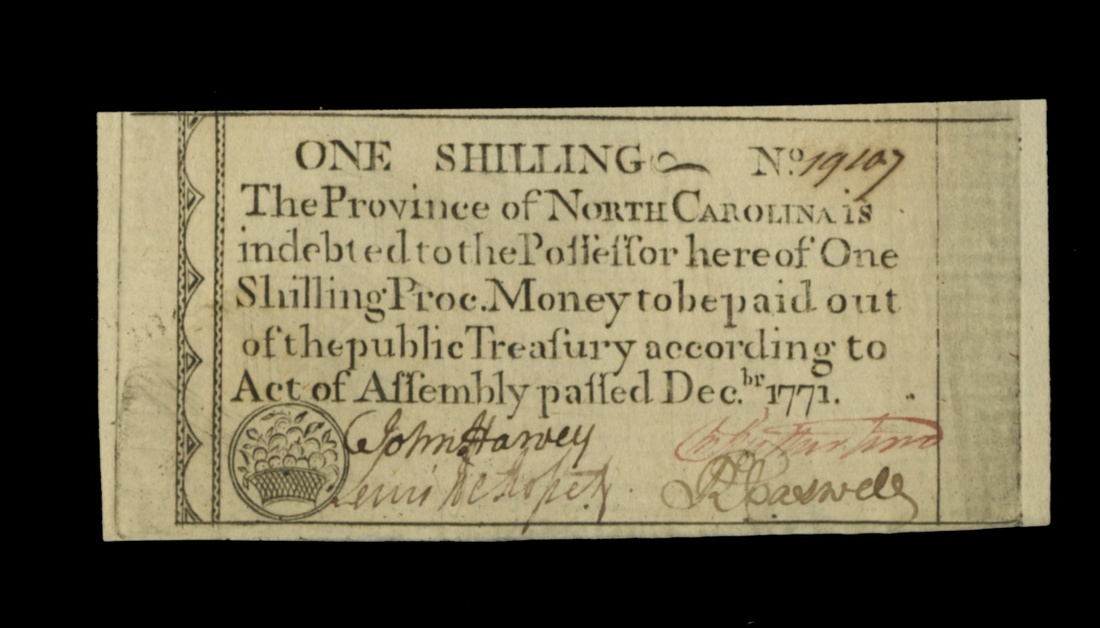 ONE SHILLING No. 19107
The Province of NORTH CAROLINA is
indebted to the Poſſeſſor here of One
Shilling Proc. Money to be paid out
of the public Treaſury according to
Act of Aſſembly paſſed Dec.br 1771.
John Harvey
Lewis De Roſſet
Rd Caswell